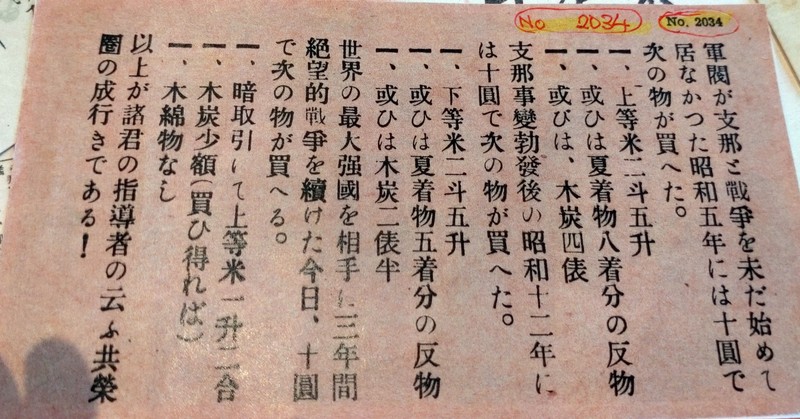 No 2034
No. 2034
軍閥が支那と戰爭を未だ始めて
居なかつた昭和五年には十圓で
次の物が買へた。
一、上等米二斗五升
一、或ひは夏着物八着分の反物
一、或びは、木炭四俵
支那事變勃發後の昭和十二年に
は十圓で次の物が買へた。
一、下等米二斗五升
一、或ひは夏着物五着分の反物
一、或ひは木炭二俵半
世界の最大强國を相手に三年間
絕望的戰爭を續けた今日、十圓
で次の物が買へる。
一、暗取引にて上等米一升二合
一、木炭少額(買ひ得れば)
一、木綿物なし
以上が諸君の指導者の云ふ共榮
圈の成行きである!